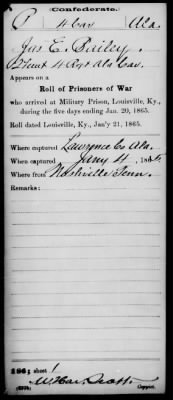 (Confederate.)
P 4 Cav Ala.
Jas E. Bailey.
Lieut 4 Regt Ala Cav.
Appears on a
Roll of Prisoners of War
who arrived at Military Prison, Louisville, Ky.,
during the five days ending Jan. 20, 1865.
Roll dated Louisville, Ky., Jan'y 21, 1865.
Where captured Lawrence Co Ala.
When captured Jany 4, 186
Where from Nashville Tenn.
Remarks:
sheet 1
Copyist.